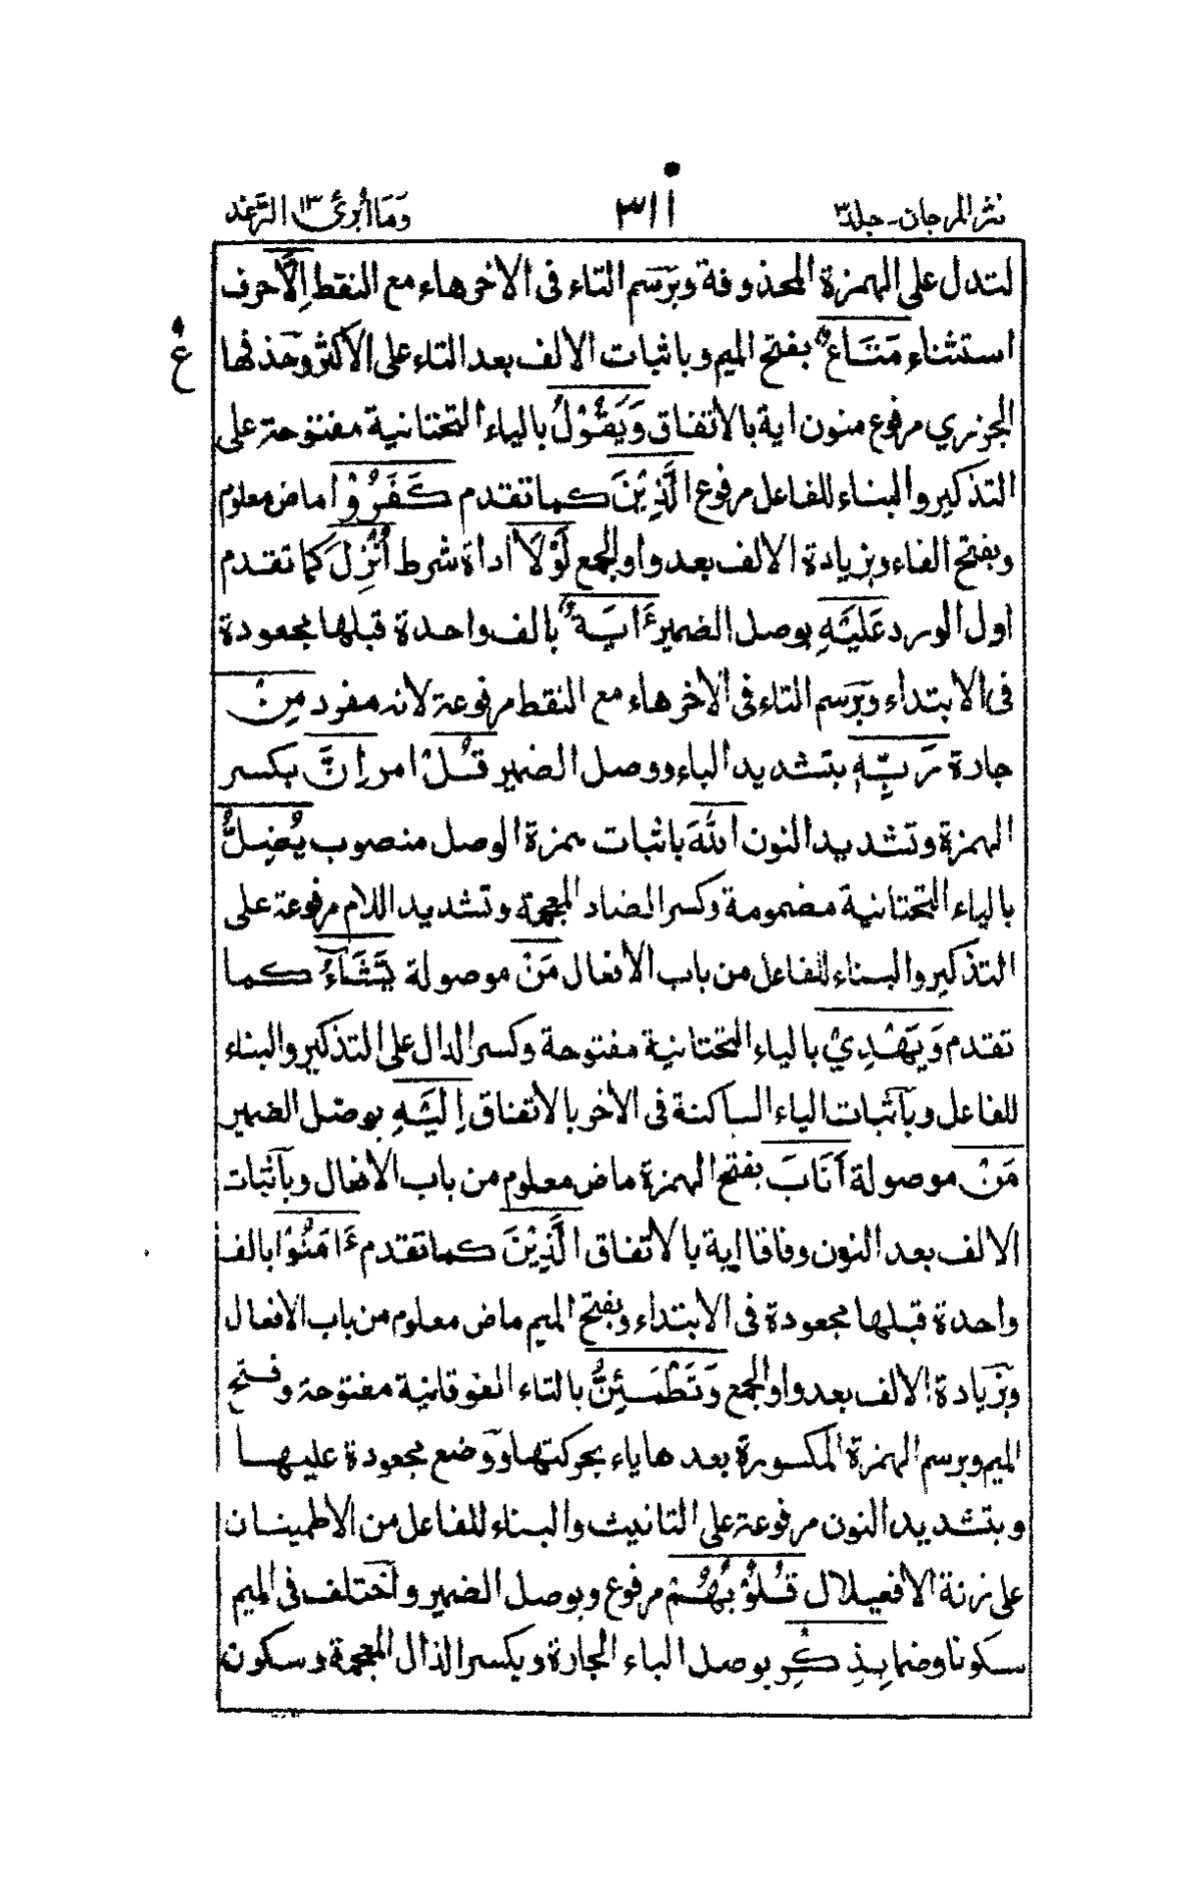 نثر المرجان - جلد ٣
٣١١
وَمَا أُبَرِّئُ ١٣ الرَّعْد
لتدل على الهمزة المحذوفة وبرسم التاء فى الاخر هاء مع النقط اِلَّا حرف
استثناء مَتَاعٌ بفتح الميم وباثبات الالف بعد التاء على الاكثر وحذفها
ع
الجزري مرفوع منون اية بالاتفاق وَيَقُوْلُ بالياء التحتانية مفتوحة على
التذكير والبناء للفاعل مرفوع الَّذِيْنَ كما تقدم كَفَرُوْا ماض معلوم
وبفتح الفاء وبزيادة الالف بعد واو الجمع لَوْلَا اداة شرط اُنْزِلَ كما تقدم
اول الورد عَلَيْهِ بوصل الضمير ءَايَةٌ بالف واحدة قبلها مجعودة
فى الابتداء وبرسم التاء فى الاخر هاء مع النقط مرفوعة لانه مفرد مِنْ
جارة رَبِّهٖ بتشديد الباء ووصل الضمير قُلْ امر اِنَّ بكسر
الهمزة وتشديد النون اللّٰهَ باثبات همزة الوصل منصوب يُضِلُّ
بالياء التحتانية مضمومة وكسر الضاد المعجمة وتشديد اللام مرفوعة على
التذكير والبناء للفاعل من باب الافعال مَنْ موصولة يَّشَآءُ كما
تقدم وَيَهْدِيْ بالياء التحتانية مفتوحة وكسر الدال على التذكير والبناء
للفاعل وباثبات الياء الساكنة فى الاخر بالاتفاق اِلَيْهِ بوصل الضمير
مَنْ موصولة اَنَابَ بفتح الهمزة ماض معلوم من باب الافعال وباثبات
الالف بعد النون وفاقا اية بالاتفاق الَّذِيْنَ كما تقدم ءَامَنُوْا بالف
واحدة قبلها مجعودة فى الابتداء وبفتح الميم ماض معلوم من باب الافعال
وبزيادة الالف بعد واو الجمع وَتَطْمَئِنُّ بالتاء الفوقانية مفتوحة وفتح
الميم وبرسم الهمزة المكسورة بعدها ياء بحركتها ووضع مجعودة عليها
وبتشديد النون مرفوعة على التانيث والبناء للفاعل من الاطمينان
على زنة الافعيلال قُلُوْبُهُمْ مرفوع وبوصل الضمير واختلف فى الميم
سكونا وضما بِذِكْرِ بوصل الباء الجارة وبكسر الذال المعجمة وسكون